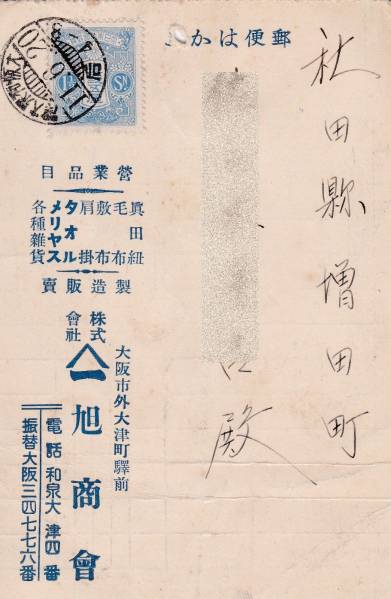 郵便はかき
秋田縣増田町
殿
營業品目
眞田紐
毛布
敷布
肩掛
タオル
メリヤス
各種雜貨
製造販賣
大阪市外大津町驛前
株式會社
一旭商會
電話和泉大津四番
振替大阪三四七七六番
11.6.20